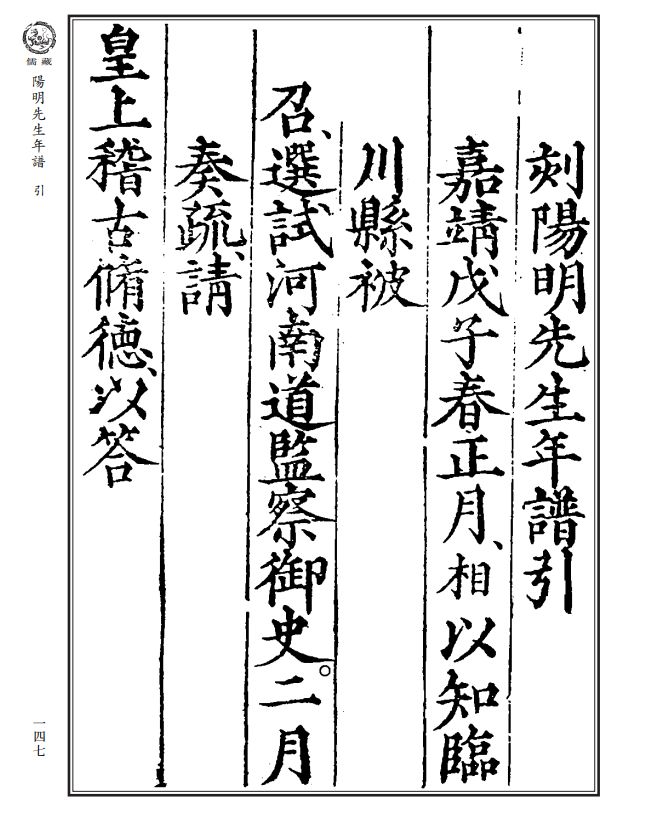 刻陽明先生年譜引
嘉靖戊子春正月、相以知臨
川縣被
召、選試河南道監察御史。二月
奏疏、請
皇上稽古脩德、以答
儒藏
陽明先生年譜 引
一四七